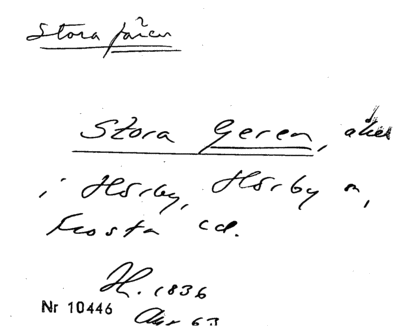 Stora jären
Stora Geren, åker
i Hörby, Hörby sn,
Frosta hd.
H. 1836
Nr 10446
Akt 63